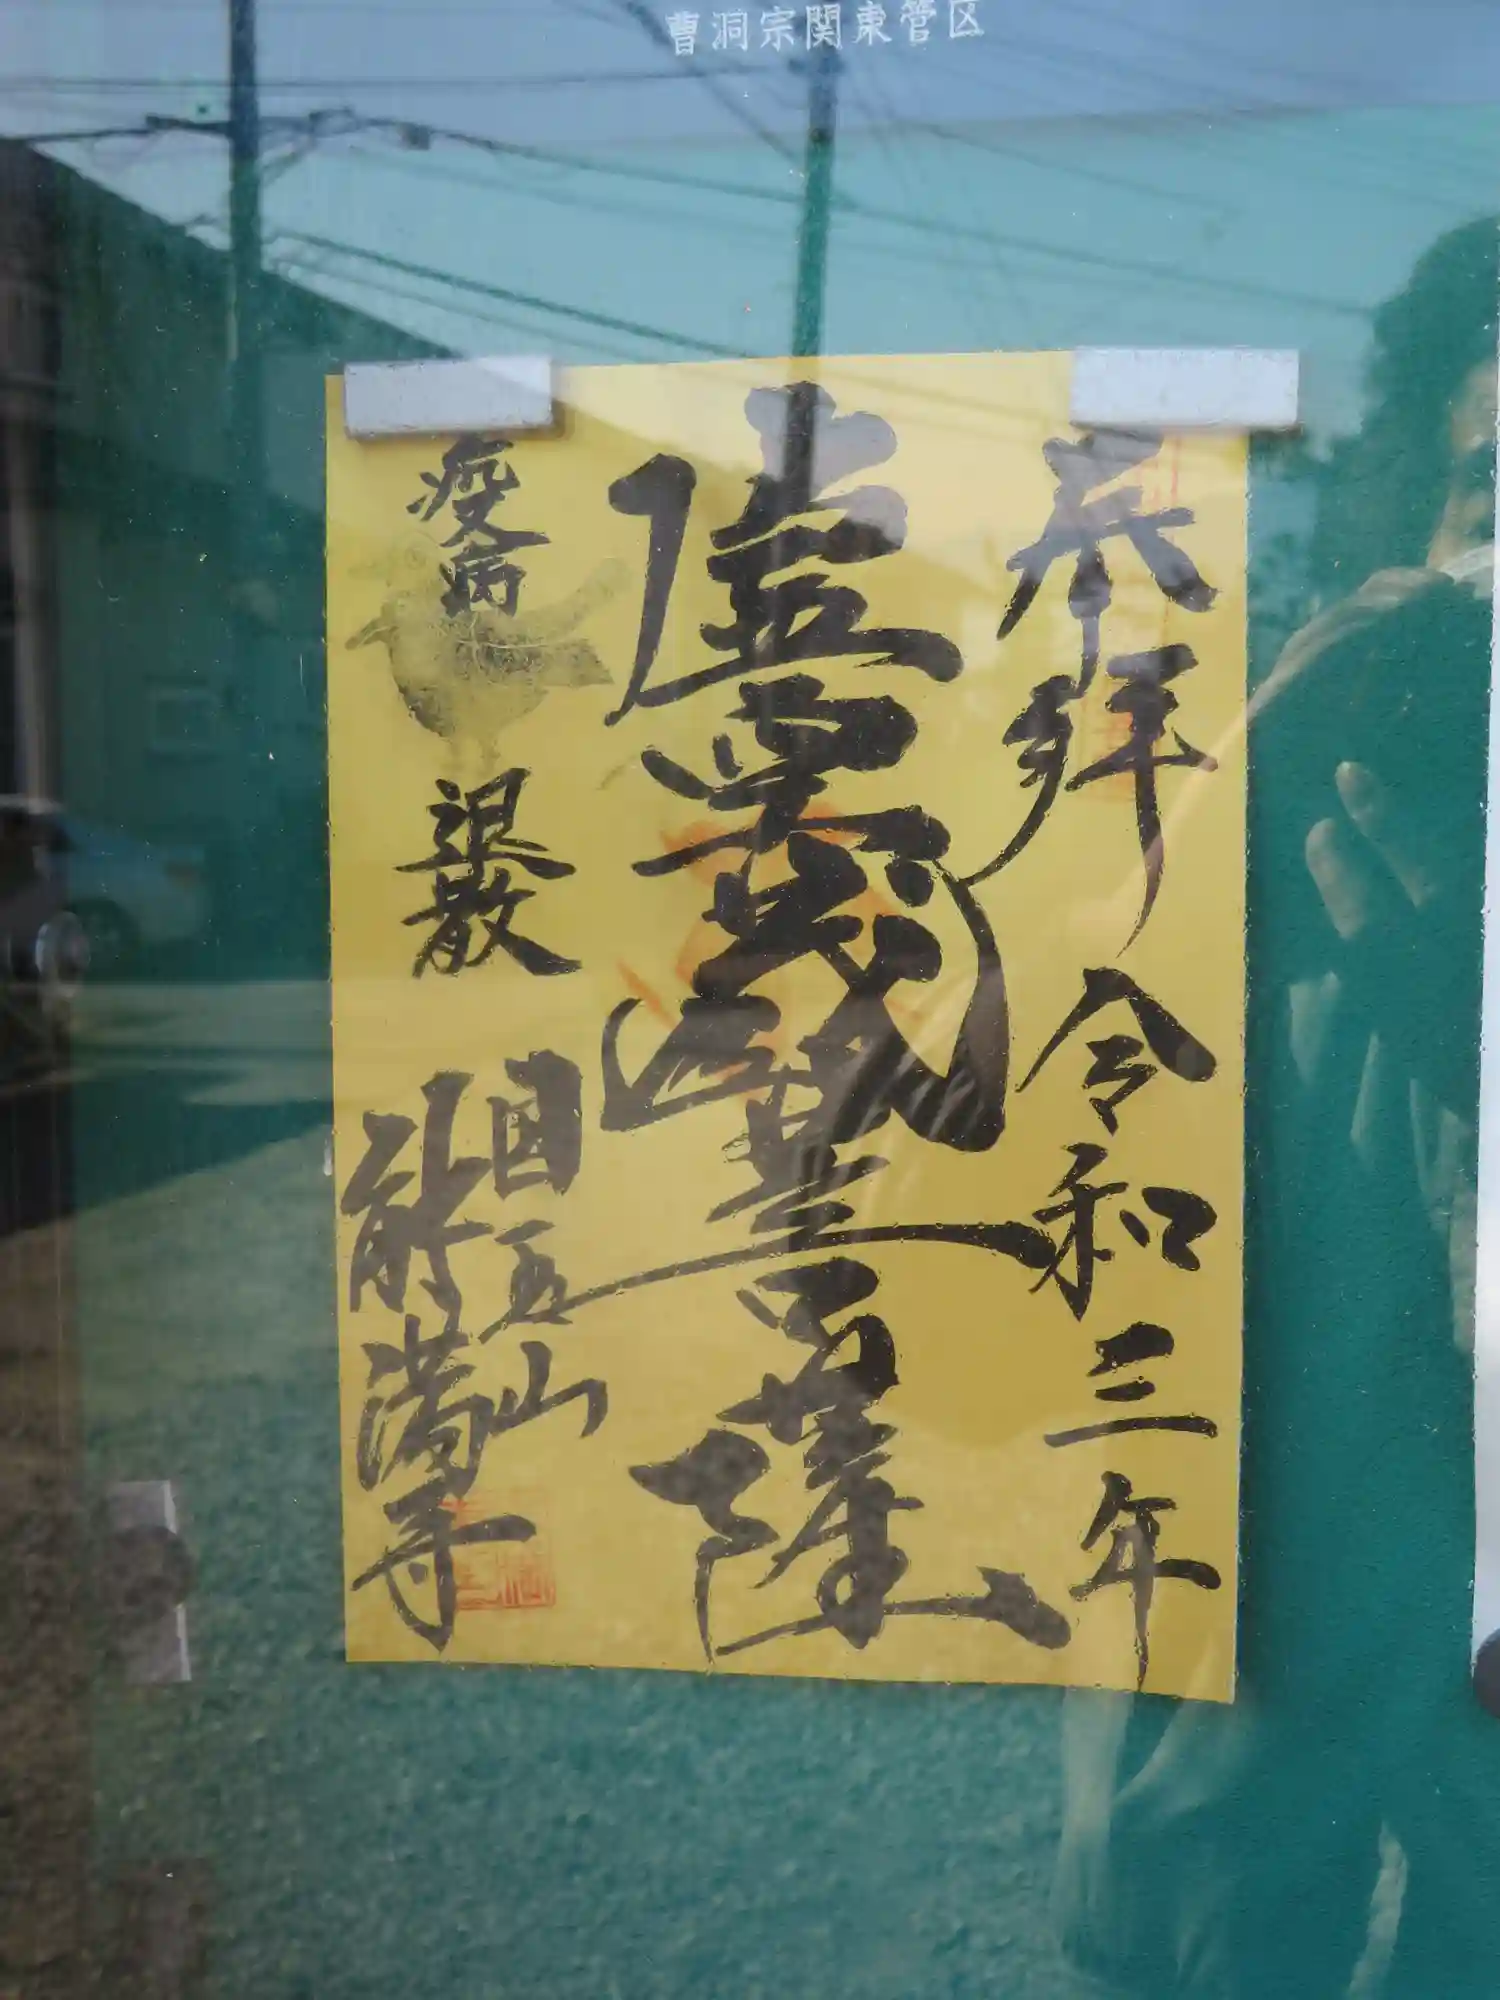 曹洞宗関東管区
奉拝 令和三年
虚空蔵菩薩
疫病 退散
山
能満寺